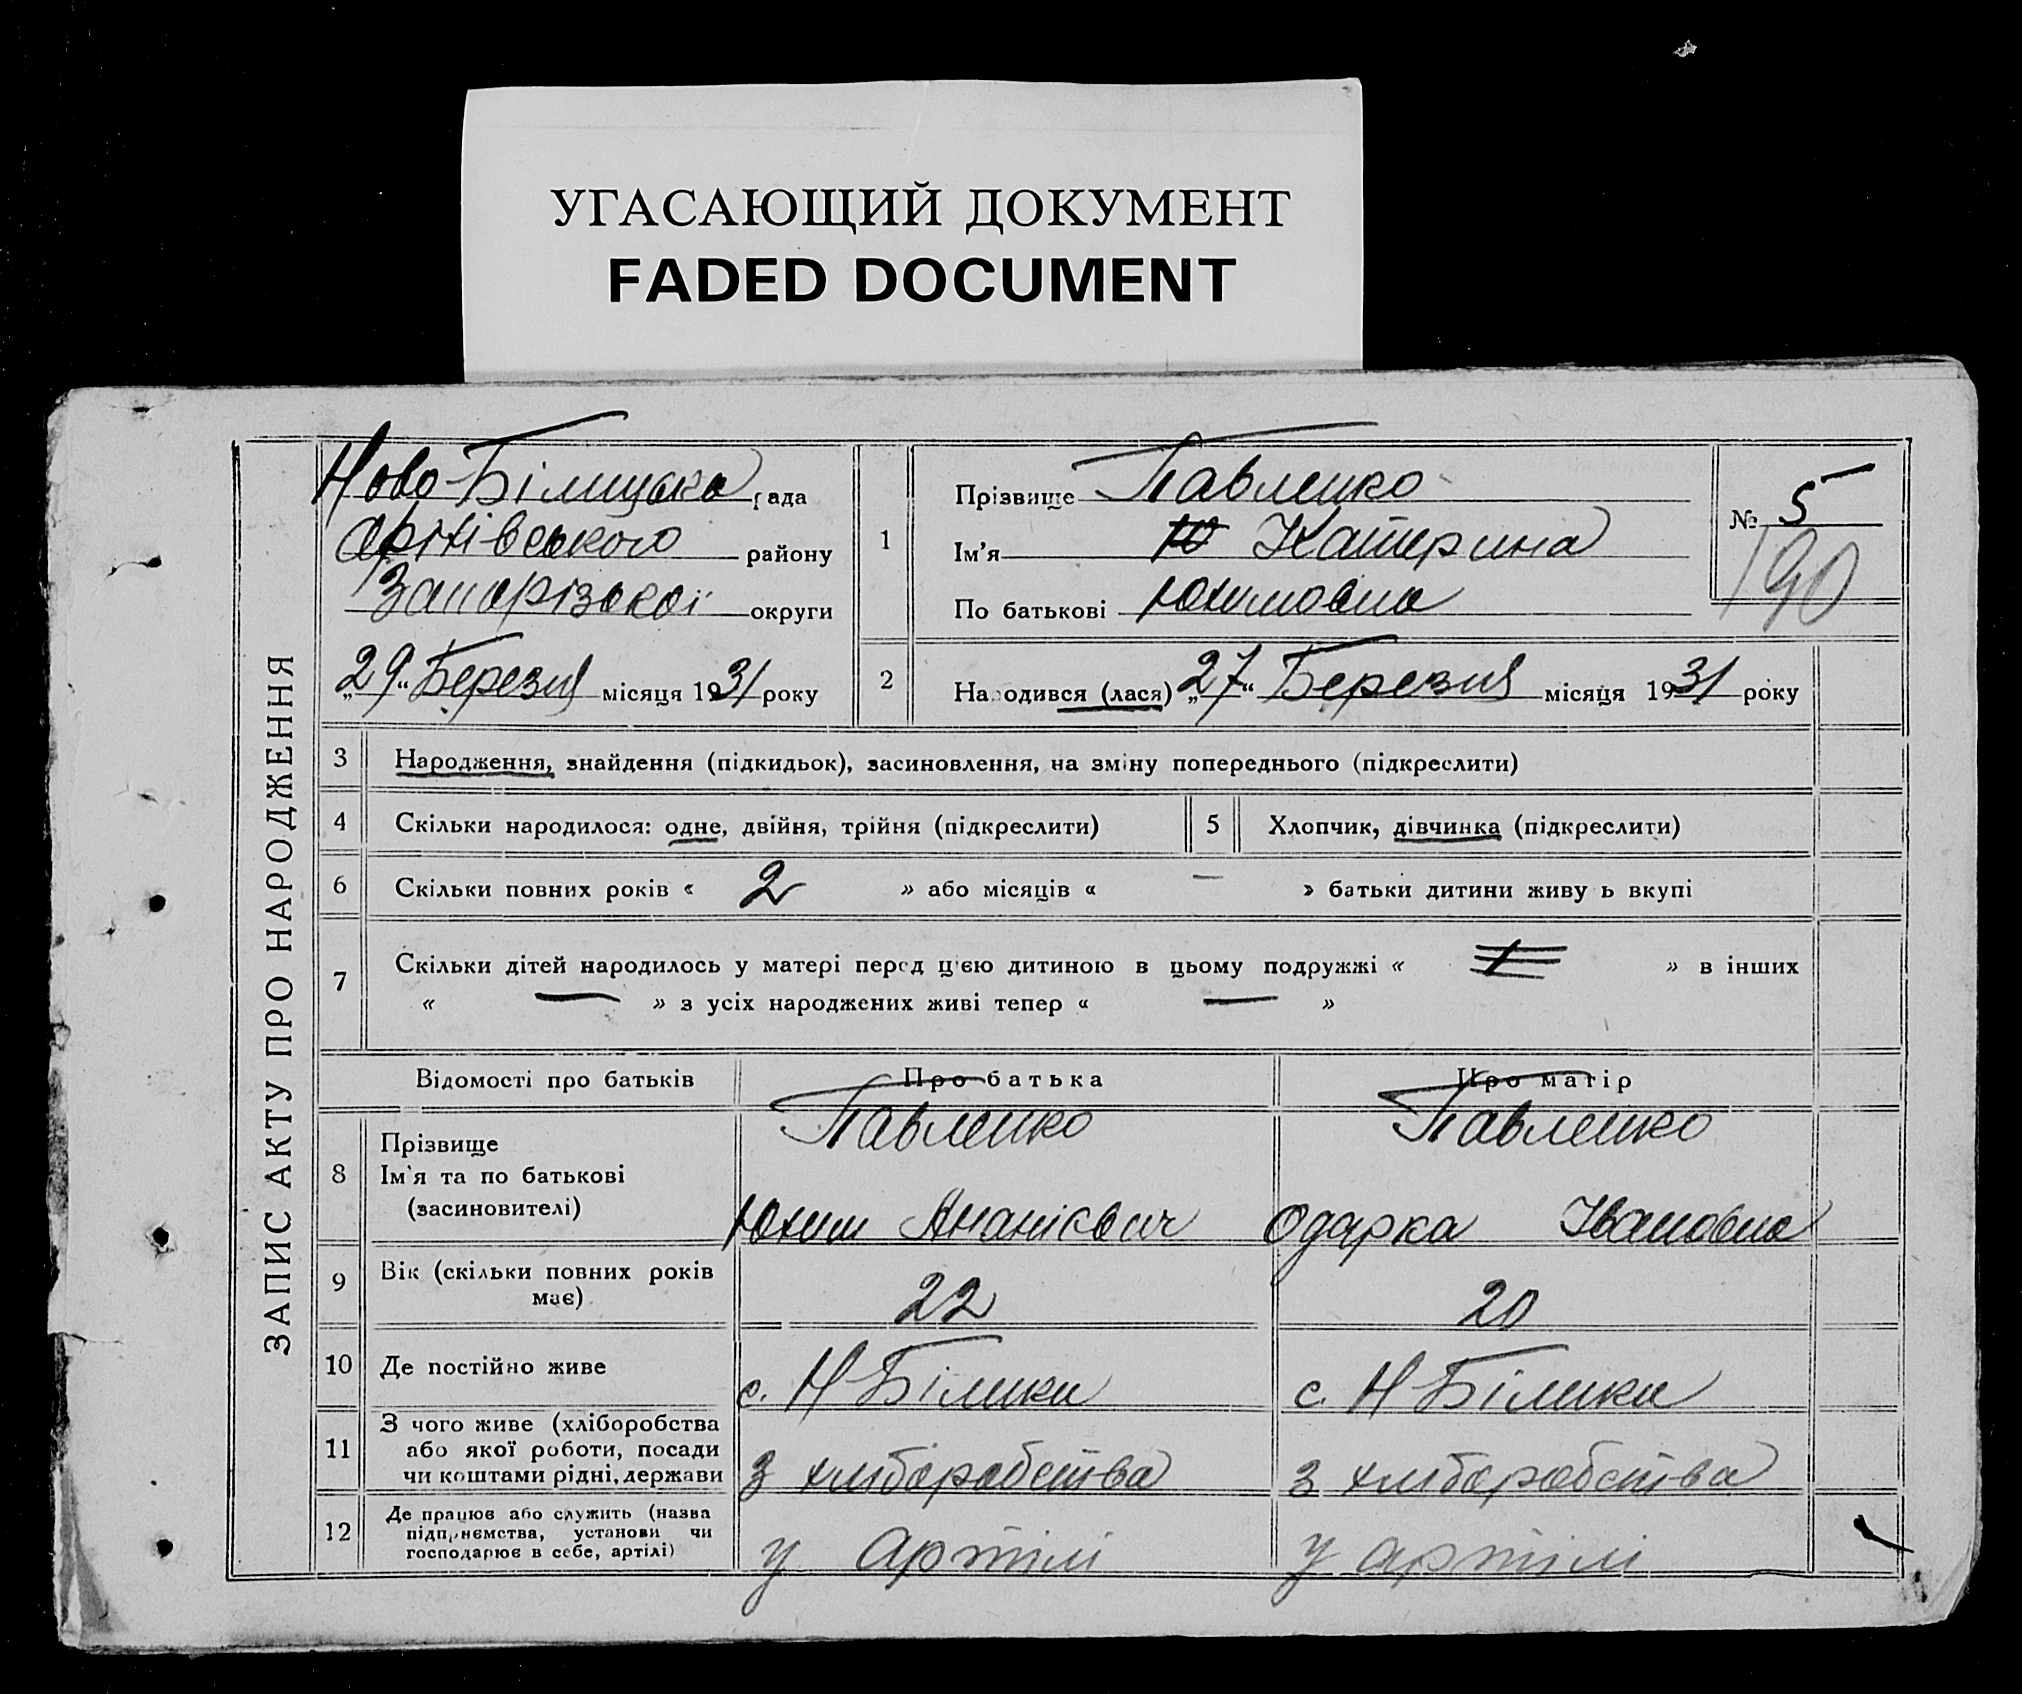 УГАСАЮЩИЙ ДОКУМЕНТ
FADED DOCUMENT
ЗАПИС АКТУ ПРО НАРОДЖЕННЯ
Ново-Білицька рада
району
Запорізької округи
„29“ Березня місяця 1931 року
1
Прізвище Павленко
Ім'я Катерина
По батькові Юхимовна
№ 5
190
2
Народився (лася) „27“ Березня місяця 1931 року
3 Народження, знайдення (підкидьок), засиновлення, на зміну попереднього (підкреслити)
4 Скільки народилося: одне, двійня, трійня (підкреслити)
5 Хлопчик, дівчинка (підкреслити)
6 Скільки повних років « 2 » або місяців « — » батьки дитини живуть вкупі
7 Скільки дітей народилось у матері перед цією дитиною в цьому подружжі « » в інших
« — » з усіх народжених живі тепер « — »
Відомості про батьків Про батька Про матір
8 Прізвище
Ім'я та по батькові
(засиновителі)
Павленко Павленко
Юхим Ананієвич Одарка Івановна
9 Вік (скільки повних років
має)
22 20
10 Де постійно живе с. Н Білики с. Н Білики
11 З чого живе (хліборобства
або якої роботи, посади
чи коштами рідні, держави
з хліборобства з хліборобства
12 Де працює або служить (назва
підприємства, установи чи
господарює в себе, артілі)
у артілі у артілі